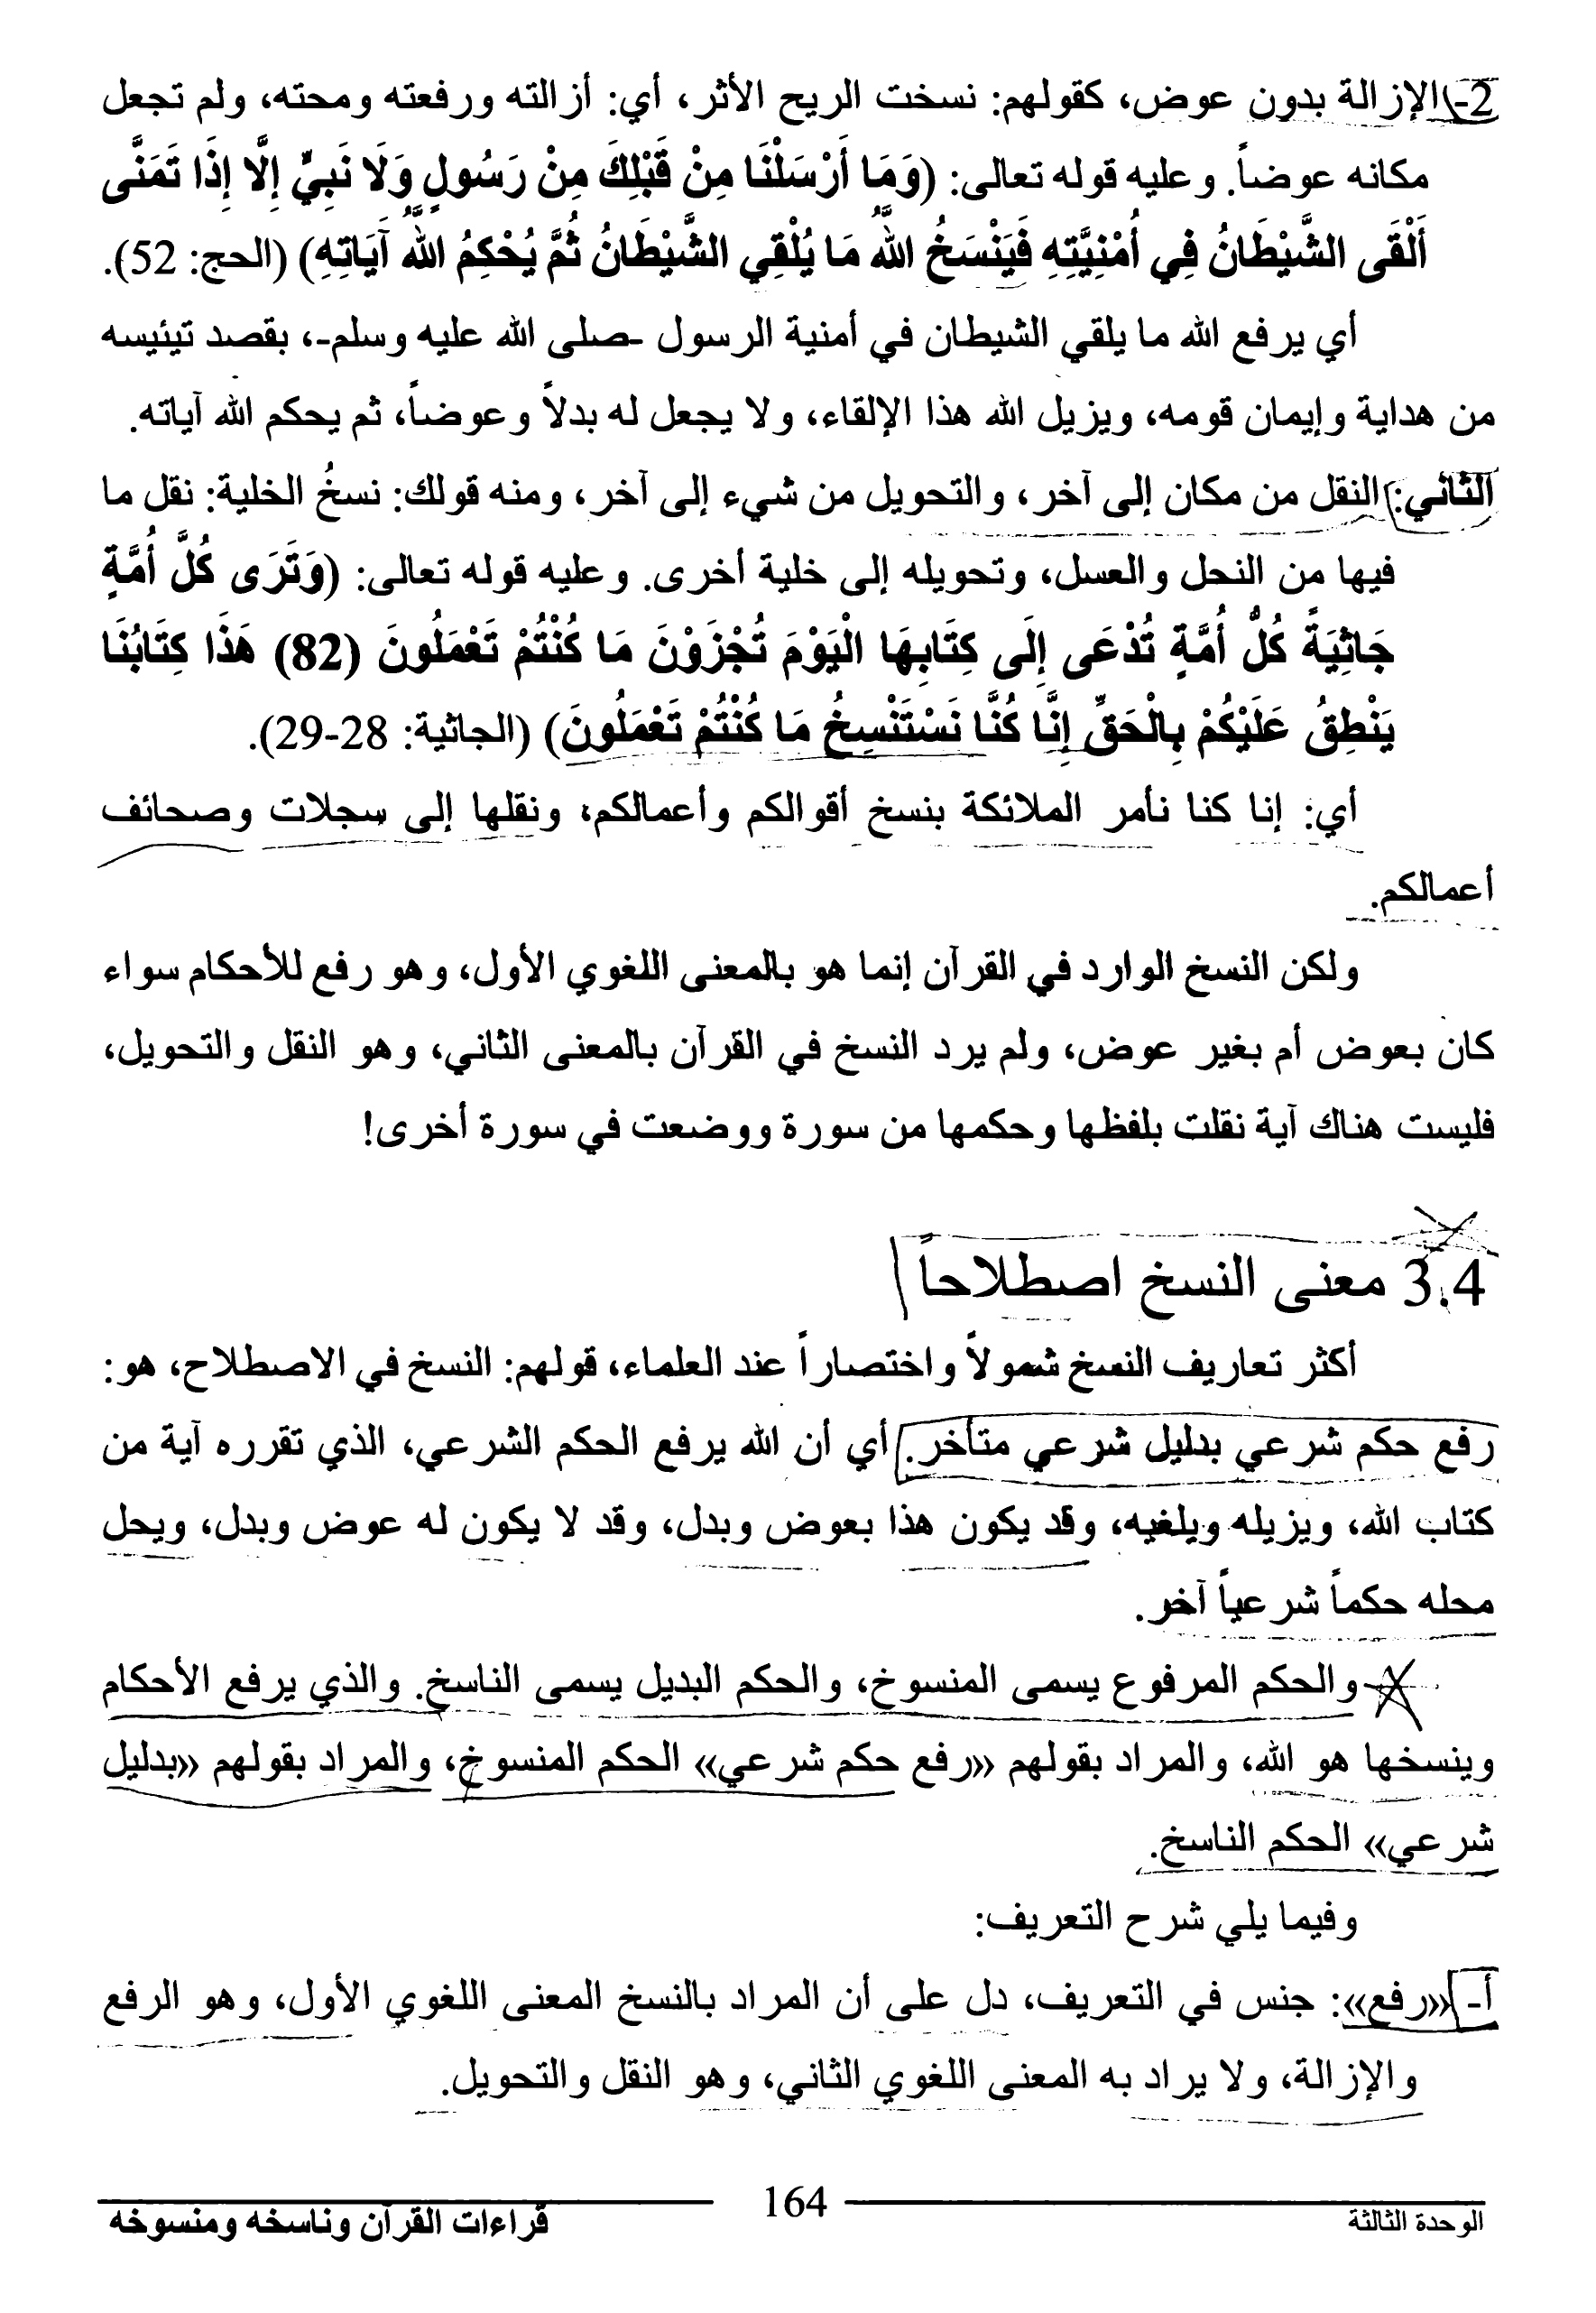 2- الإزالة بدون عوض، كقولهم: نسخت الريح الأثر، أي: أزالته ورفعته ومحته، ولم تجعل
مكانه عوضاً. وعليه قوله تعالى: (وَمَا أَرْسَلْنَا مِنْ قَبْلِكَ مِنْ رَسُولٍ وَلَا نَبِيٍّ إِلَّا إِذَا تَمَنَّى
أَلْقَى الشَّيْطَانُ فِي أُمْنِيَّتِهِ فَيَنْسَخُ اللَّهُ مَا يُلْقِي الشَّيْطَانُ ثُمَّ يُحْكِمُ اللَّهُ آيَاتِهِ) (الحج: 52).
أي يرفع الله ما يلقي الشيطان في أمنية الرسول -صلى الله عليه وسلم-، بقصد تيئيسه
من هداية وإيمان قومه، ويزيل الله هذا الإلقاء، ولا يجعل له بدلاً وعوضاً، ثم يحكم الله آياته.
الثاني: النقل من مكان إلى آخر، والتحويل من شيء إلى آخر، ومنه قولك: نسخُ الخلية: نقل ما
فيها من النحل والعسل، وتحويله إلى خلية أخرى. وعليه قوله تعالى: (وَتَرَى كُلَّ أُمَّةٍ
جَاثِيَةً كُلُّ أُمَّةٍ تُدْعَى إِلَى كِتَابِهَا الْيَوْمَ تُجْزَوْنَ مَا كُنْتُمْ تَعْمَلُونَ (82) هَذَا كِتَابُنَا
يَنْطِقُ عَلَيْكُمْ بِالْحَقِّ إِنَّا كُنَّا نَسْتَنْسِخُ مَا كُنْتُمْ تَعْمَلُونَ) (الجاثية: 28-29).
أي: إنا كنا نأمر الملائكة بنسخ أقوالكم وأعمالكم، ونقلها إلى سجلات وصحائف
أعمالكم.
ولكن النسخ الوارد في القرآن إنما هو بالمعنى اللغوي الأول، وهو رفع للأحكام سواء
كان بعوض أم بغير عوض، ولم يرد النسخ في القرآن بالمعنى الثاني، وهو النقل والتحويل،
فليست هناك آية نقلت بلفظها وحكمها من سورة ووضعت في سورة أخرى!
3.4 معنى النسخ اصطلاحاً
أكثر تعاريف النسخ شمولاً واختصاراً عند العلماء، قولهم: النسخ في الاصطلاح، هو:
رفع حكم شرعي بدليل شرعي متأخر. أي أن الله يرفع الحكم الشرعي، الذي تقرره آية من
كتاب الله، ويزيله ويلغيه، وقد يكون هذا بعوض وبدل، وقد لا يكون له عوض وبدل، ويحل
محله حكماً شرعياً آخر.
والحكم المرفوع يسمى المنسوخ، والحكم البديل يسمى الناسخ. والذي يرفع الأحكام
وينسخها هو الله، والمراد بقولهم «رفع حكم شرعي» الحكم المنسوخ، والمراد بقولهم «بدليل
شرعي» الحكم الناسخ.
وفيما يلي شرح التعريف:
أ- «رفع»: جنس في التعريف، دل على أن المراد بالنسخ المعنى اللغوي الأول، وهو الرفع
والإزالة، ولا يراد به المعنى اللغوي الثاني، وهو النقل والتحويل.
الوحدة الثالثة 164 قراءات القرآن وناسخه ومنسوخه